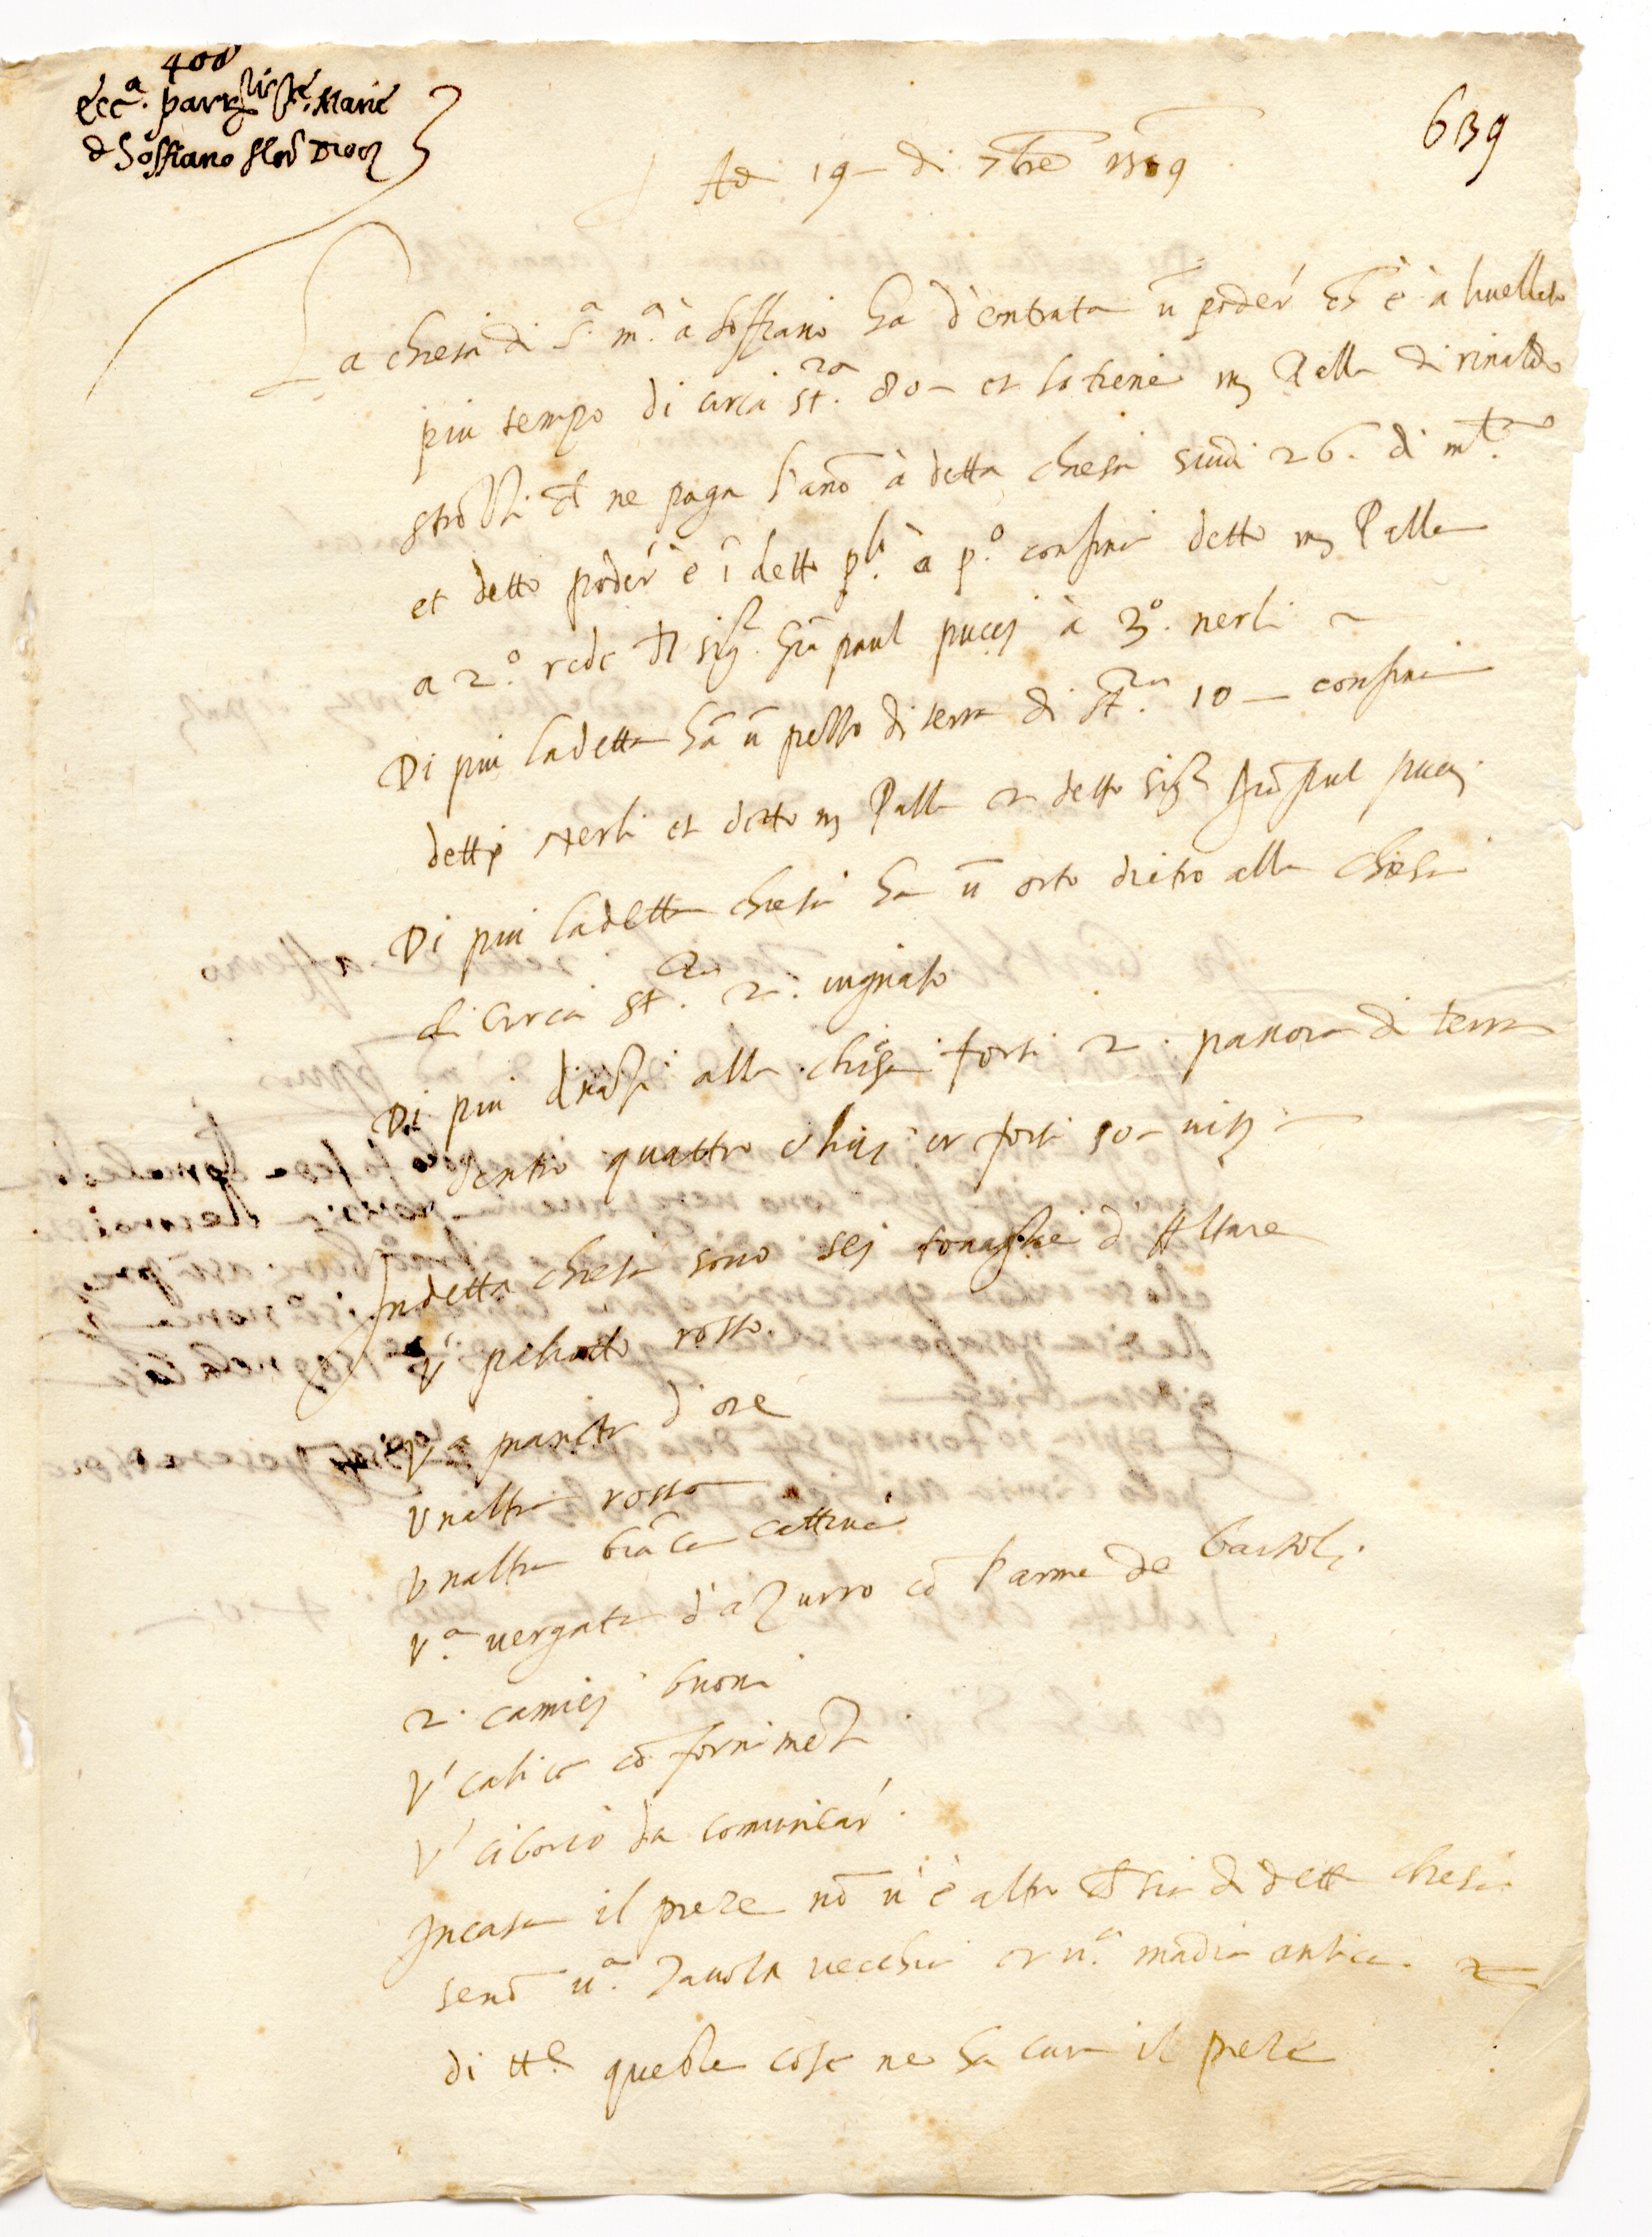 400
Ecc.a parr.lis S.te Marie
d Soffiano flor Dioc
639
Ad 19 di 7bre 1569
La chiesa di S.a m.a à Soffiano ha d'entrata ũ poder' ch' è à livello
piu tempo di circa st.ra 80 – et lo tiene m Palla di rinaldo
strozzi et ne paga l'anō à detta chiesa scudi 26. di m.ta
et detto poder' è ī detto p.lo à p.o confini detto m Palla
a 2.o rede dl sig.r Giā paul pucci à 3.o nerli
Di piu la detta hà ũ pezzo di terra di st.ra 10 – confini
detti Nerli et detto m Palla et detto sig.r Giā paul pucci.
Di piu la detta chiesa ha ũ orto dietro alla chiesa
di circa st.ra 2. vignato
Di piu dināzi alla chiesa forsi 2. panora di terra
dentro quattro ulivi et forsi 50 – viti
In detta chiesa sono sei tovaglie d Altare
v' paliotto rosso.
V.a pianeta d'ore
Vnaltra rossa
Vnaltra biāca cattiva
V.a vergata d'azurro cō l'arme de bartoli.
2. camici buoni
V' calice cō fornimēti
V' ciborio da comunicar'.
In casa il prete nō u' è altro ch sia di detta chiesa
senō u.a Tavola vecchia et u.a madia antica. et
di tt.e queste cose ne ha cura il prete